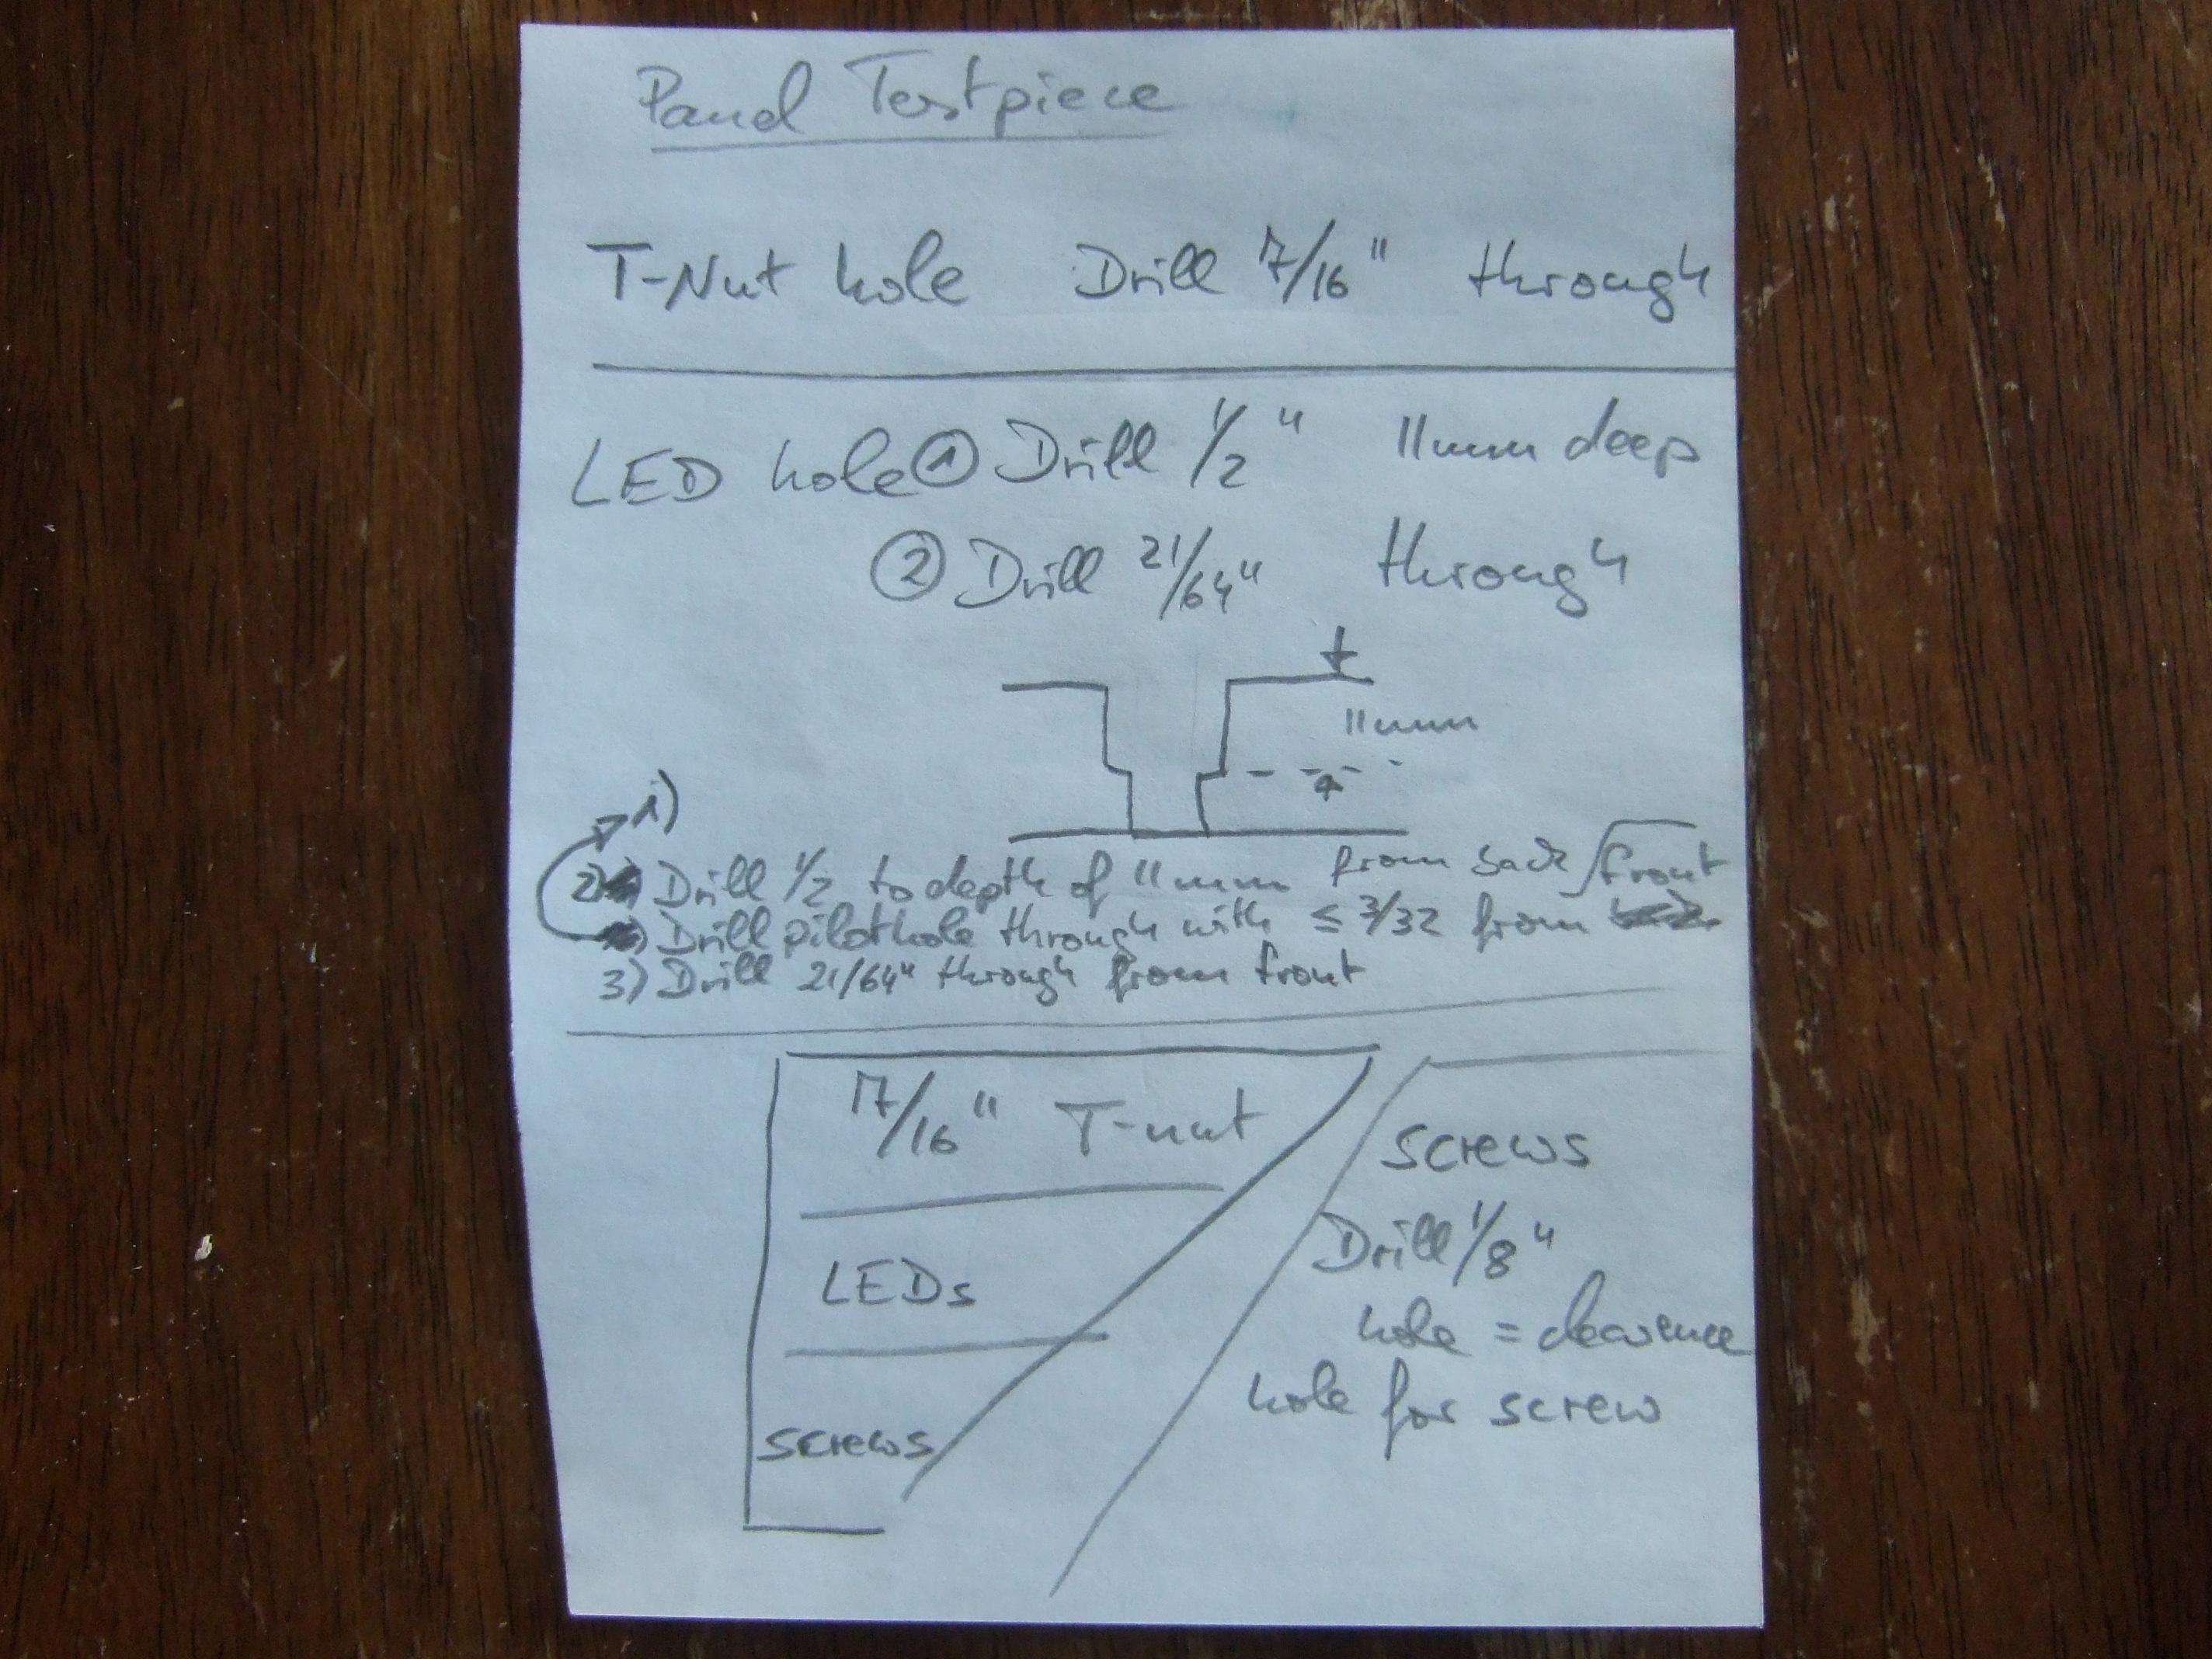 Panel Testpiece
T-Nut hole Drill 7/16" through
LED hole ① Drill 1/2" 11mm deep
② Drill 21/64" through
11mm
1)
2) Drill 1/2 to depth of 11mm from back
front
Drill pilothole through with ≤ 3/32 from
3) Drill 21/64" through from front
7/16" T-nut
LEDs
screws
screws
Drill 1/8"
hole = clearence
hole for screw